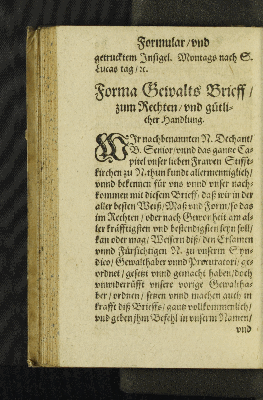 Formular / vnd
getrucktem Insigel. Montags nach S.
Lucas tag / ꝛc.
Forma Gewalts Brieff /
zum Rechten / vnd gütli-
cher Handlung.
WIr nachbenannten N. Dechant /
B. Senior / vnnd das gantze Ca-
pitel vnser lieben Frawen Stiffts-
kirchen zu N. thun kundt allermenniglich /
vnnd bekennen für vns vnnd vnser nach-
kommen mit diesem Brieff / daß wir in der
aller besten Weiß / Maß vnd Form / so das
im Rechten / oder nach Gewonheit am al-
ler kräfftigsten vnd bestendigsten seyn soll /
kan oder mag / Weisern diß / den Ersamen
vnnd Fürsichtigen N. zu vnserm Syn-
dico / Gewalthaber vnnd Procuratorn / ge-
ordnet / gesetzt vnnd gemacht haben / doch
vnwiderrüfft vnsere vorige Gewaltha-
ber / ordnen / setzen vnnd machen auch in
krafft diß Brieffs / gantz vollkommenlich /
vnd geben jhm Befehl in vnserm Namen /
vnd